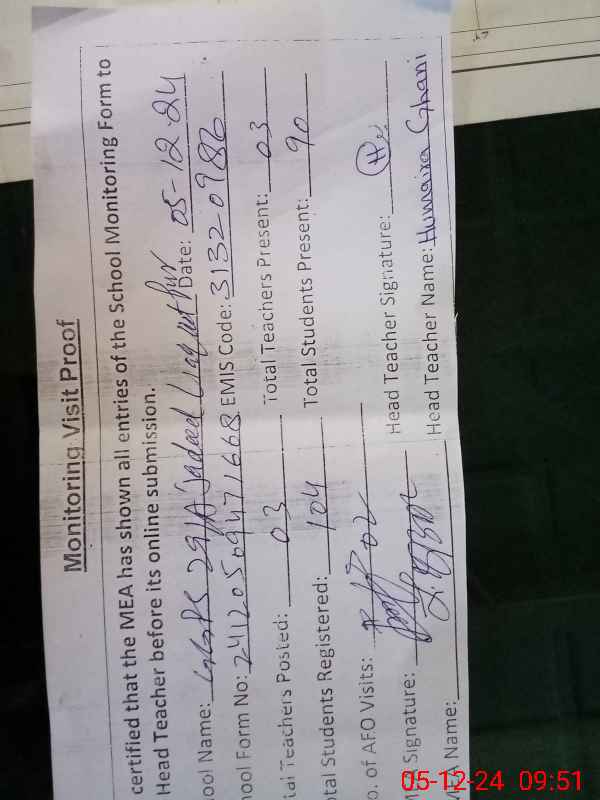 Monitoring Visit Proof
certified that the MEA has shown all entries of the School Monitoring Form to
Head Teacher before its online submission.
ool Name: GGPS 291A Jadeed Liaqat Pur Date: 05-12-24
ool Form No: 24120509471668 EMIS Code: 31320986
tal Teachers Posted: 03 Total Teachers Present: 03
otal Students Registered: 104 Total Students Present: 90
o. of AFO Visits: 02
Signature: Head Teacher Signature:
MEA Name: Head Teacher Name: Humaira Ghani
05-12-24 09:51